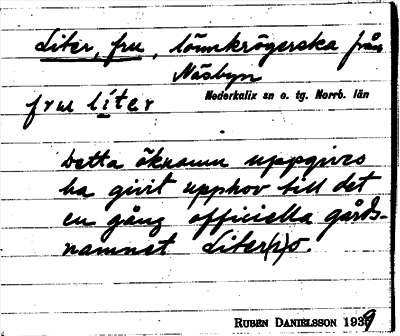 Liter, fru, lönnkrögerska från
Näsbyn
Nederkalix sn o. tg. Norrb. län
fru líter
Detta öknamn uppgives
ha givit upphov till det
en gång officiella gårds-
namnet Liter(s)o.
RUBEN DANIELSSON 1939